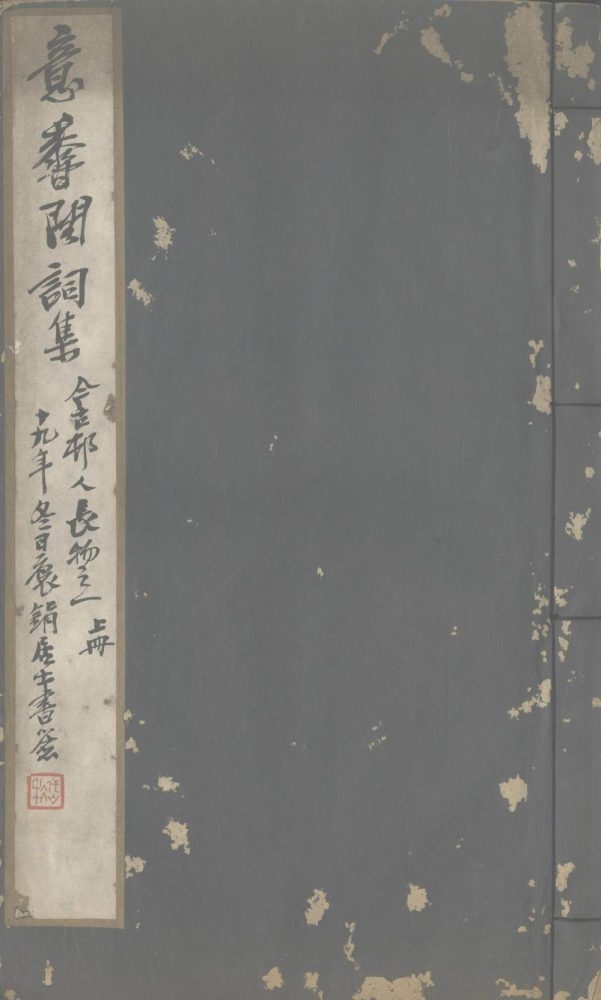 意香閣詞集
舍邨人長物之一 上冊
十九年冬日裵鋗居士書簽